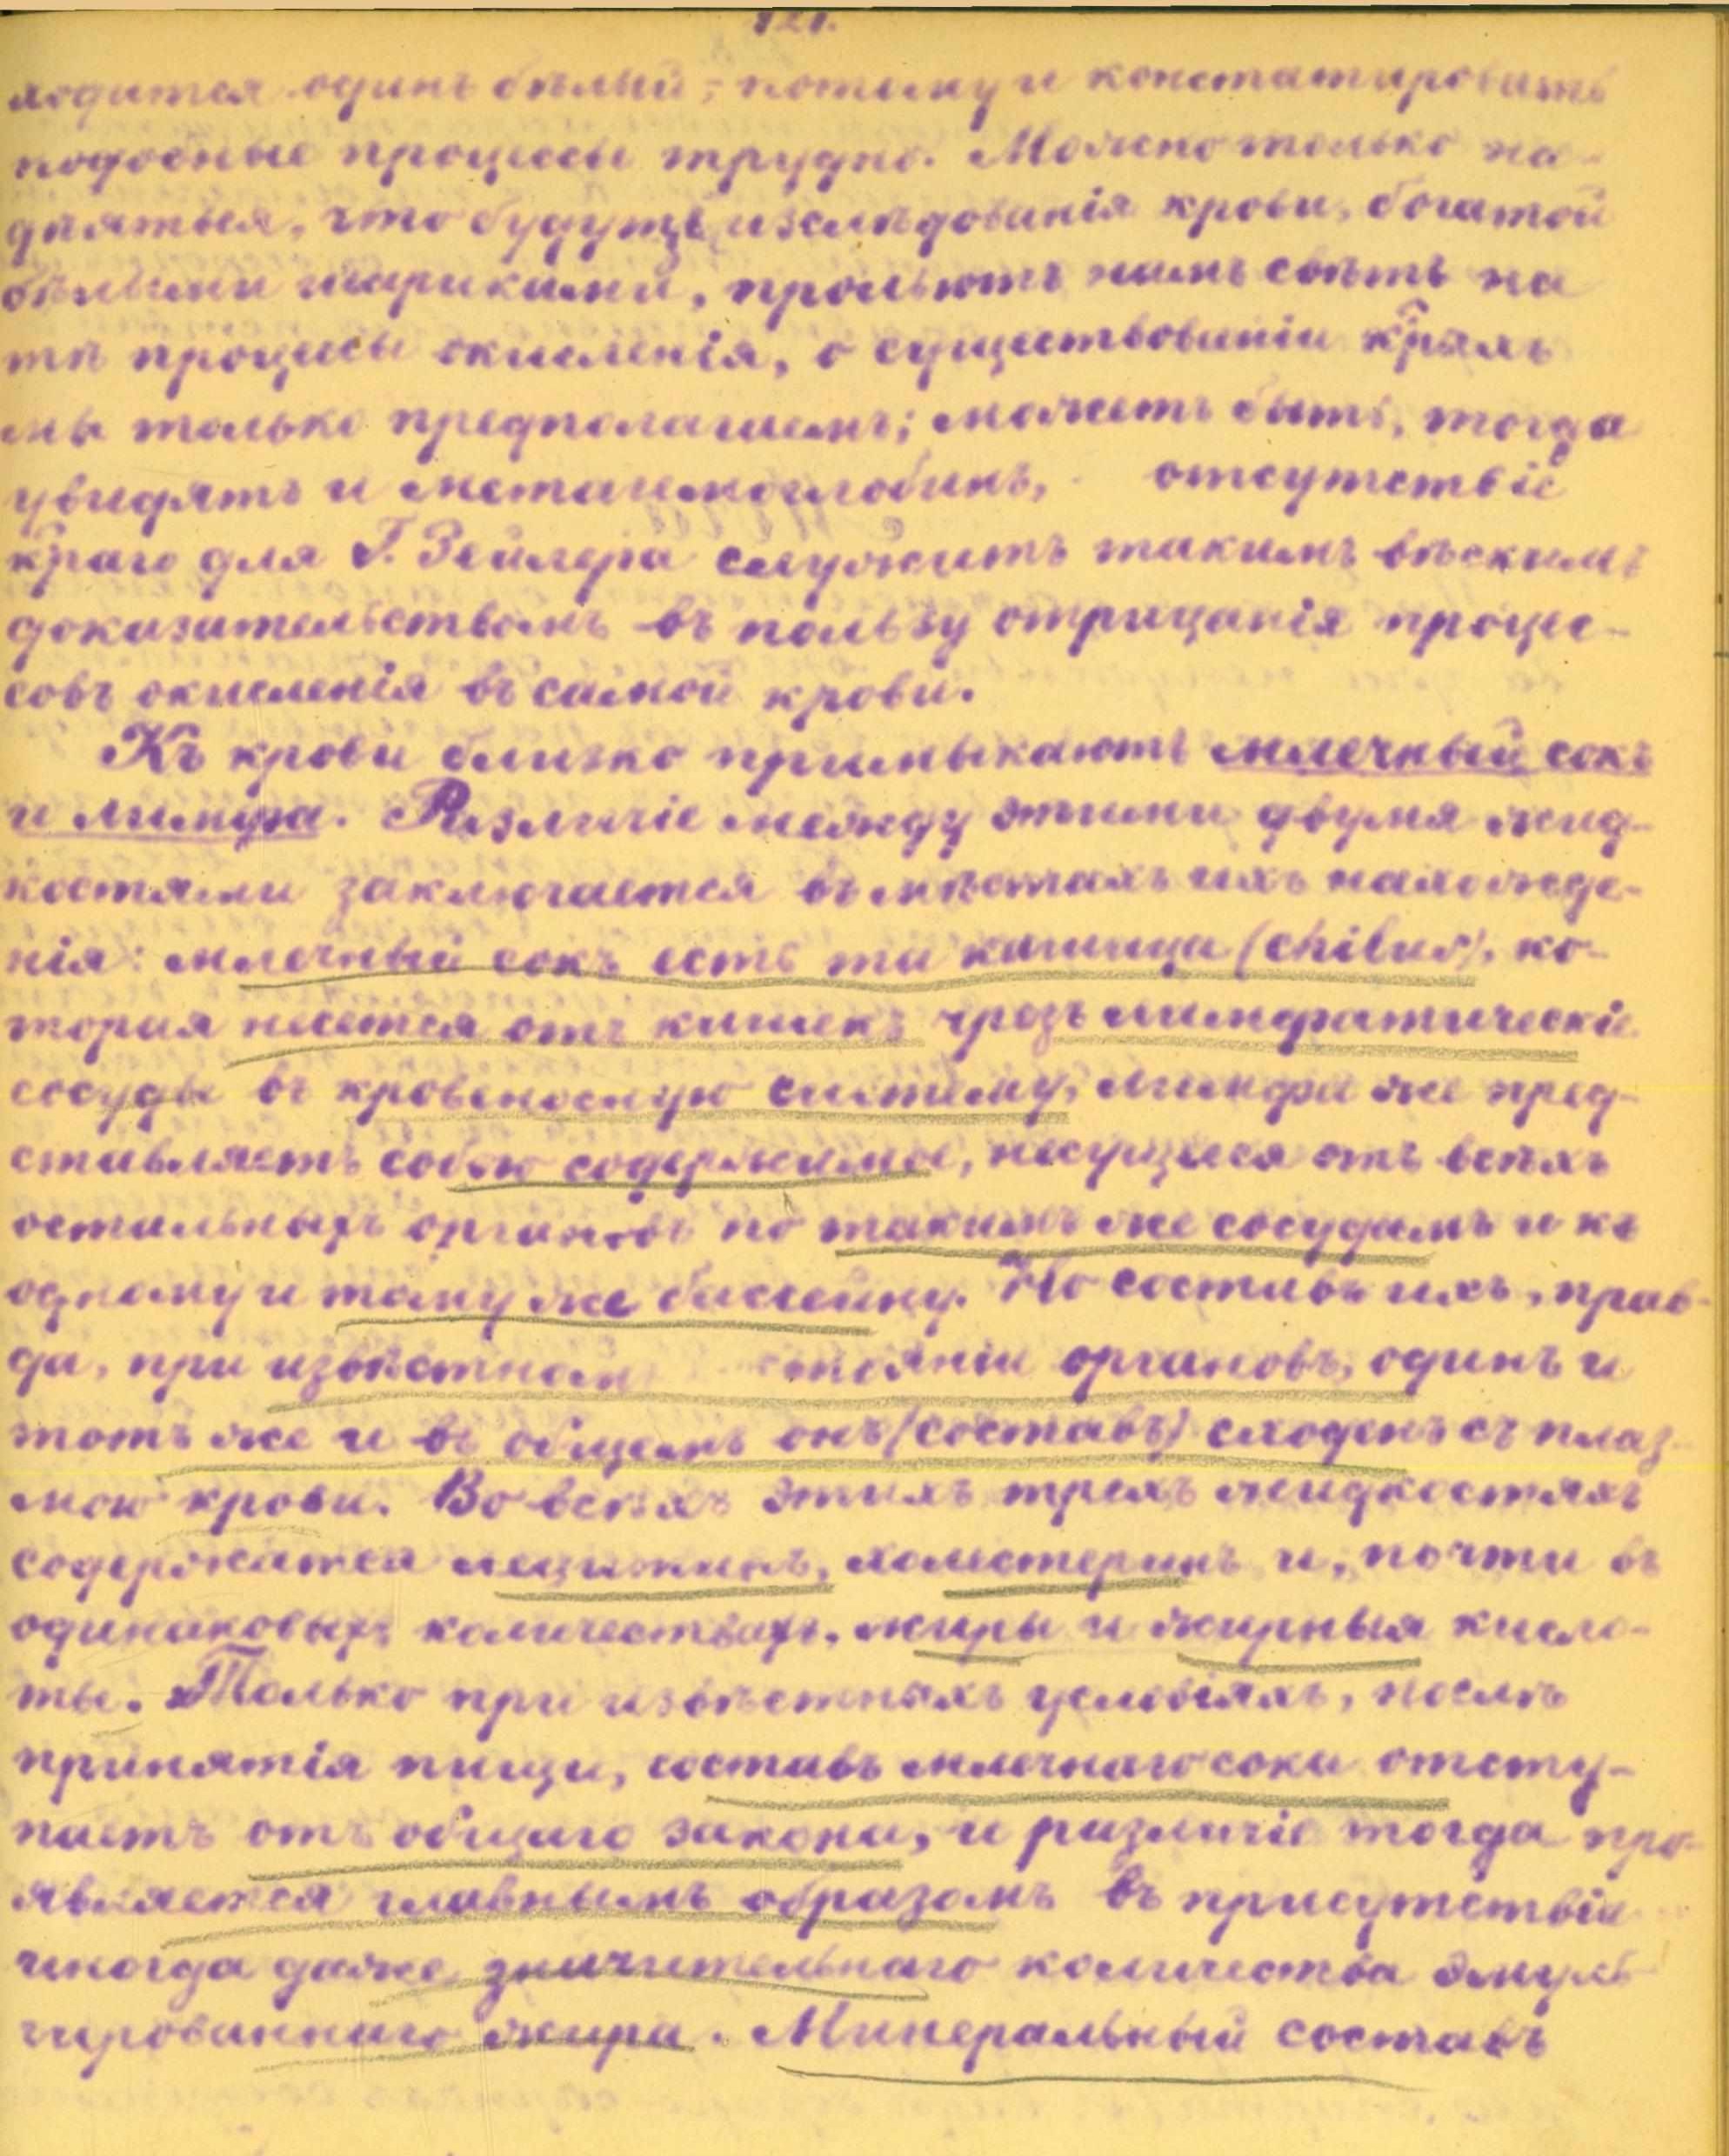 121.
ходится одинъ бѣлый; потому и констатировать
подобные процессы трудно. Можно только на-
дѣяться, что будутъ изслѣдованія крови, богатой
бѣлыми шариками, прольютъ намъ свѣтъ на
тѣ процессы окисленія, о существованіи к̑рыхъ
мы только предполагаемъ; можетъ быть, тогда
увидятъ и метаемоглобинъ, отсутствіе
к̑раго для Г. Зейлера служитъ такимъ вѣскимъ
доказательствомъ въ пользу отрицанія процес-
совъ окисленія въ самой крови.
Къ крови близко примыкаютъ млечный сокъ
и лимфа. Различіе между этими двумя жид-
костями заключается въ мѣстахъ ихъ нахожде-
нія: млечный сокъ есть та кашица (chilus), ко-
торая несется отъ кишекъ чрезъ лимфатическіе
сосуды въ кровеносную систему, лимфа же пред-
ставляетъ собою содержимое, несущееся отъ всѣхъ
остальныхъ органовъ по такимъ же сосудамъ и къ
одному и тому же бассейну. Но составъ ихъ, прав-
да, при извѣстном стояніи органовъ, одинъ и
тотъ же и въ общемъ онъ (составъ) сходенъ съ плаз-
мою крови. Во всѣхъ этихъ трехъ жидкостяхъ
содержатся лецитинъ, холестеринъ и, почти въ
одинаковыхъ количествахъ, жиры и жирныя кисло-
ты. Только при извѣстныхъ условіяхъ, послѣ
принятія пищи, составъ млечнаго сока отсту-
паетъ отъ общаго закона, и различіе тогда про-
является главнымъ образомъ въ присутствіи
иногда даже значительнаго количества эмуль-
гированнаго жира. Минеральный составъ